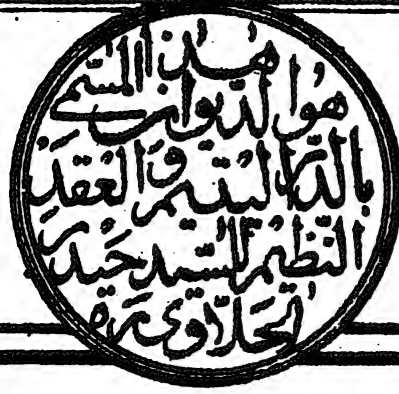 هٰذا
هو الدّيوان المُسمّى
بالدّر اليتيم وَالعُقد
النّظيم للسّيد حَيدر
الحلاّوى ره